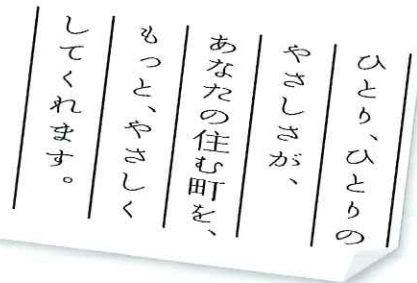 ひとり、ひとりの
やさしさが、
あなたの住む町を、
もっと、やさしく
してくれます。